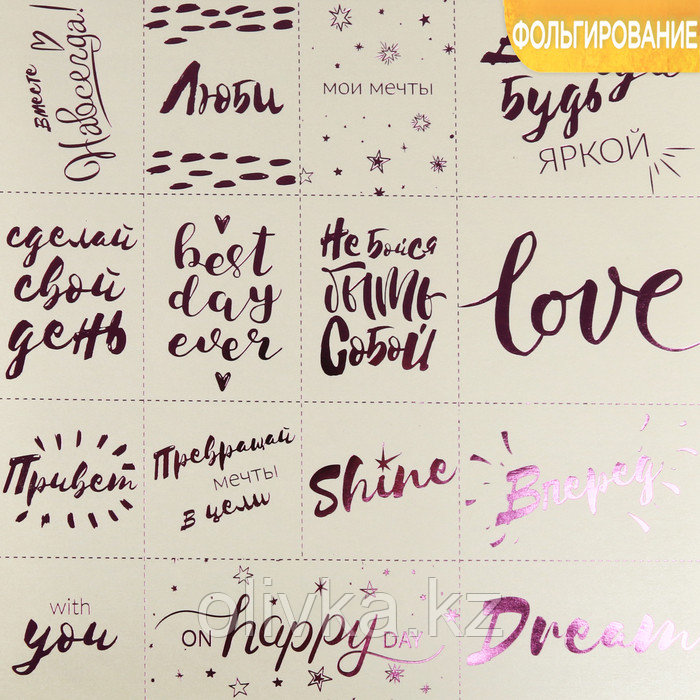 ФОЛЬГИРОВАНИЕ
Вместе
Навсегда!
Люби
мои мечты
Будь
ЯРКОЙ
сделай
свой
день
best
day
ever
Не бойся
быть
Собой
love
Привет
Превращай
мечты
в цели
Shine
Вперед
with
you
ON happy DAY
Dream
olivka.kz